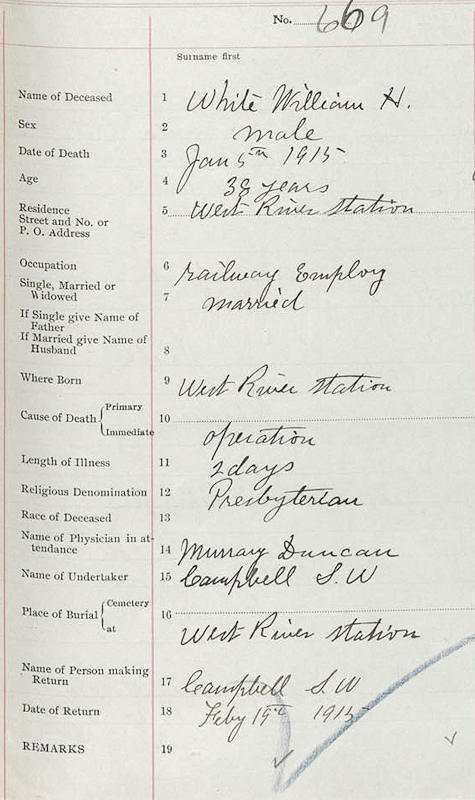 No. 669
Surname first
Name of Deceased 1 White William H.
Sex 2 male
Date of Death 3 Jan 5th 1915
Age 4 38 years
Residence 5 West River Station
Street and No. or
P. O. Address
Occupation 6 railway Employ
Single, Married or
Widowed 7 married
If Single give Name of
Father
If Married give Name of
Husband 8
Where Born 9 West River Station
Cause of Death { Primary 10
Immediate operation
Length of Illness 11 2 days
Religious Denomination 12 Presbyterian
Race of Deceased 13
Name of Physician in at-
tendance 14 Murray Duncan
Name of Undertaker 15 Campbell S. W
Place of Burial { Cemetery 16
at West River Station
Name of Person making
Return 17 Campbell S. W
Date of Return 18 Feby 1915
REMARKS 19